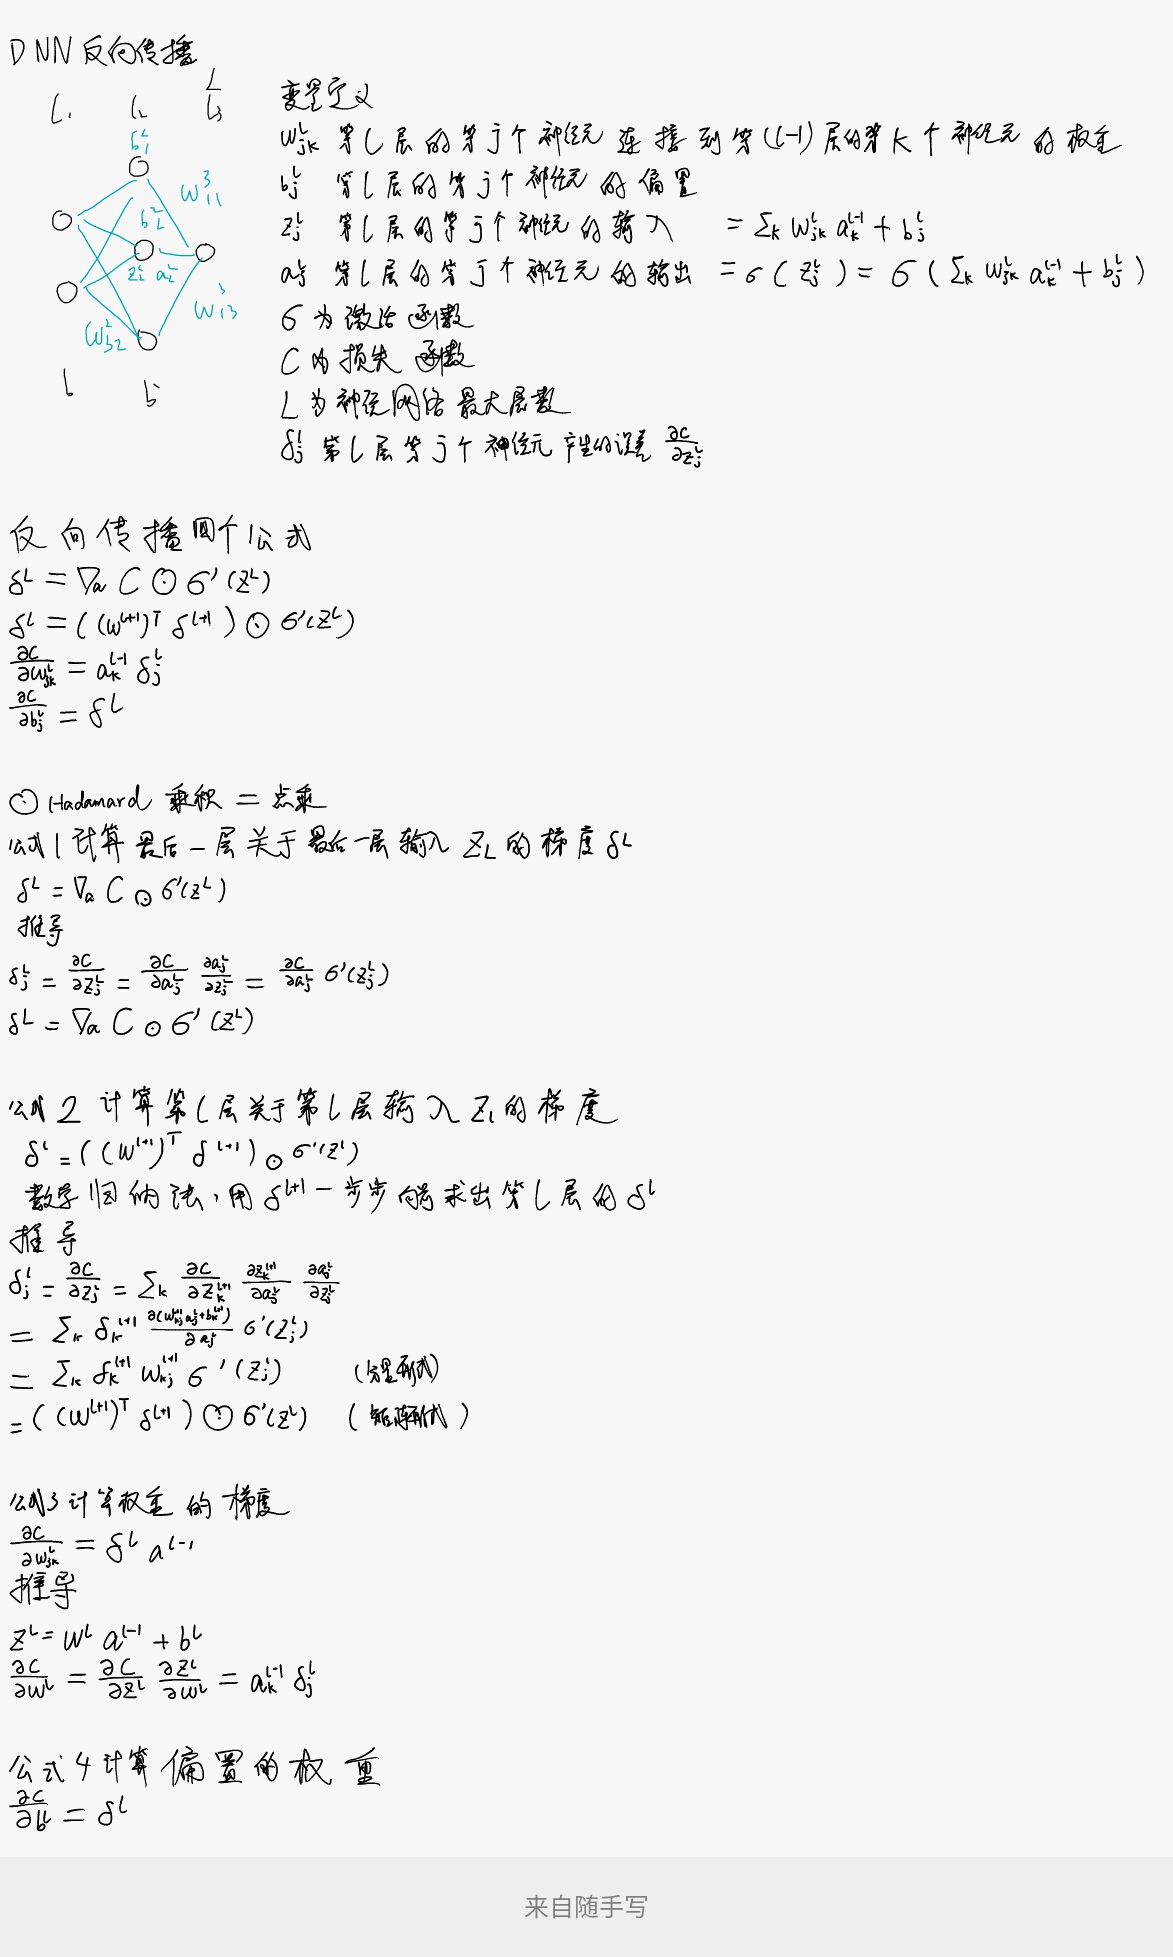 DNN 反向传播
L
l₁ l₂ l₃
b₁²
w₁₁³
b₂²
z₂² a₂²
w₁₃³
w₃₂²
变量定义
wⱼₖˡ 第l层的第j个神经元连接到第(l-1)层的第k个神经元的权重
bⱼˡ 第l层的第j个神经元的偏置
zⱼˡ 第l层的第j个神经元的输入 = Σₖ wⱼₖˡ aₖˡ⁻¹ + bⱼˡ
aⱼˡ 第l层的第j个神经元的输出 = σ(zⱼˡ) = σ(Σₖ wⱼₖˡ aₖˡ⁻¹ + bⱼˡ)
σ为激活函数
C为损失函数
L为神经网络最大层数
δⱼˡ 第l层第j个神经元产生的误差 ∂C/∂zⱼˡ
反向传播四个公式
δᴸ = ∇ₐ C ⊙ σ'(zᴸ)
δˡ = ((wˡ⁺¹)ᵀ δˡ⁺¹) ⊙ σ'(zˡ)
∂C/∂wⱼₖˡ = aₖˡ⁻¹ δⱼˡ
∂C/∂bⱼˡ = δˡ
⊙ Hadamard 乘积 = 点乘
公式1 计算最后一层关于最后一层输入 z_L 的梯度 δᴸ
δᴸ = ∇ₐ C ⊙ σ'(zᴸ)
推导
δⱼᴸ = ∂C/∂zⱼᴸ = ∂C/∂aⱼᴸ ∂aⱼᴸ/∂zⱼᴸ = ∂C/∂aⱼᴸ σ'(zⱼᴸ)
δᴸ = ∇ₐ C ⊙ σ'(zᴸ)
公式2 计算第l层关于第l层输入 zₗ 的梯度
δˡ = ((wˡ⁺¹)ᵀ δˡ⁺¹) ⊙ σ'(zˡ)
数学归纳法,用 δˡ⁺¹ 一步步向前求出第l层的 δˡ
推导
δⱼˡ = ∂C/∂zⱼˡ = Σₖ ∂C/∂zₖˡ⁺¹ ∂zₖˡ⁺¹/∂aⱼˡ ∂aⱼˡ/∂zⱼˡ
= Σₖ δₖˡ⁺¹ ∂(wₖⱼˡ⁺¹aⱼˡ+bₖˡ⁺¹)/∂aⱼˡ σ'(zⱼˡ)
= Σₖ δₖˡ⁺¹ wₖⱼˡ⁺¹ σ'(zⱼˡ) (分量形式)
= ((wˡ⁺¹)ᵀ δˡ⁺¹) ⊙ σ'(zˡ) (矩阵形式)
公式3 计算权重的梯度
∂C/∂wⱼₖˡ = δˡ aˡ⁻¹
推导
zˡ = wˡ aˡ⁻¹ + bˡ
∂C/∂wˡ = ∂C/∂zˡ ∂zˡ/∂wˡ = aₖˡ⁻¹ δⱼˡ
公式4 计算偏置的权重
∂C/∂bˡ = δˡ
来自随手写